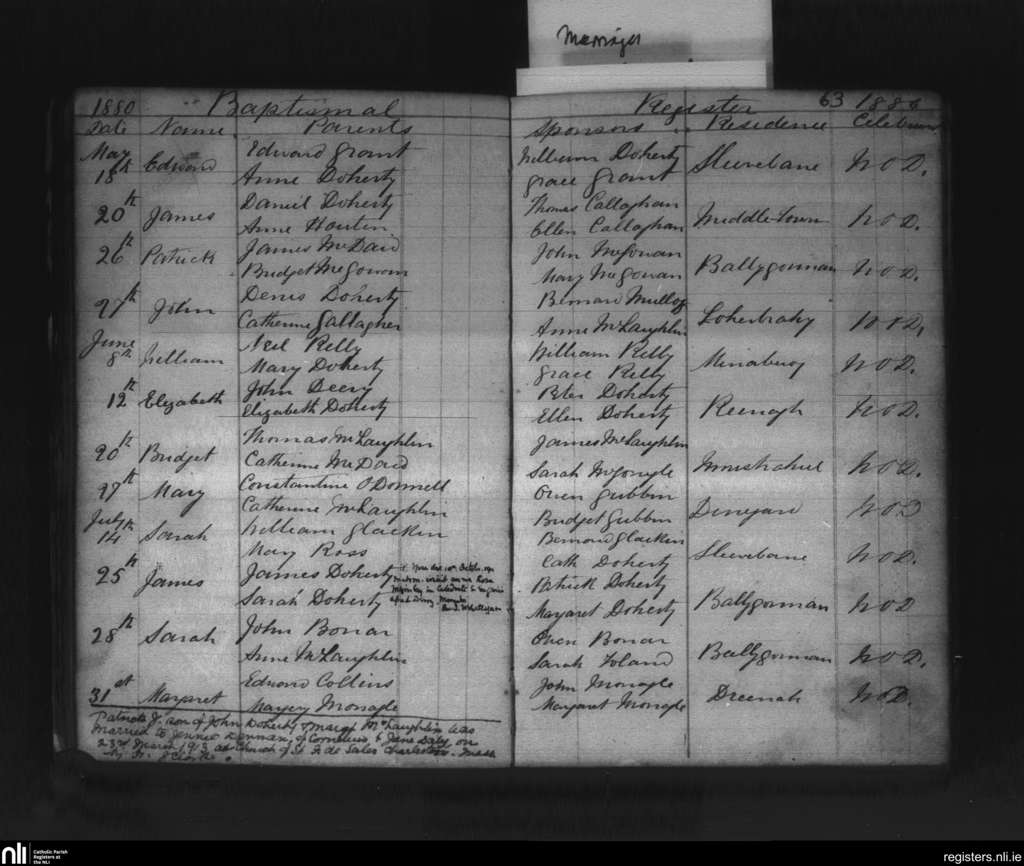 Marriages
1880 Baptismal Register 63 1880
Date Name Parents Sponsors Residence
May Edward Grant William Doherty
18th Edward Anne Doherty Grace Grant Sleevebane W O D.
20th James Daniel Doherty Thomas Callaghan
Anne Ellen Callaghan Middletown W O D.
26th Patrick James McDaid John McGowan
Bridget McGowan Mary McGowan Ballygorman W O D.
27th John Denis Doherty Bernard
Catherine Gallagher Anne McLaughlin W O D.
June Neil Kelly William Kelly
8th William Mary Doherty Grace Kelly W O D.
12th Elizabeth John Deery Peter Doherty
Elizabeth Doherty Ellen Doherty Keenagh W O D.
20th Bridget Thomas McLaughlin James McLaughlin
Catherine McDaid Sarah McGonigle W O D.
27th Mary Constantine O'Donnell Owen Gubbin
Catherine McLaughlin Bridget Gubbin W O D
July William Glacken Bernard Glacken
14th Sarah Mary Ross Cath Doherty Sleevebane W O D.
25th James James Doherty Patrick Doherty
Sarah Doherty Margaret Doherty Ballygorman W O D
28th Sarah John Bonar Owen Bonar
Anne McLaughlin Sarah Toland Ballygorman W O D.
31st Margaret Edward Collins John Monagle
Monagle Margaret Monagle Dreenah W O D.
Patrick J. son of John Doherty & Margt McLaughlin was
married to of Cornelius & Jane Daly on
23rd March 1913 at Church of St. F. de Sales Charlestown. Mass
by Fr.
nli Catholic Parish
Registers at
the NLI
registers.nli.ie